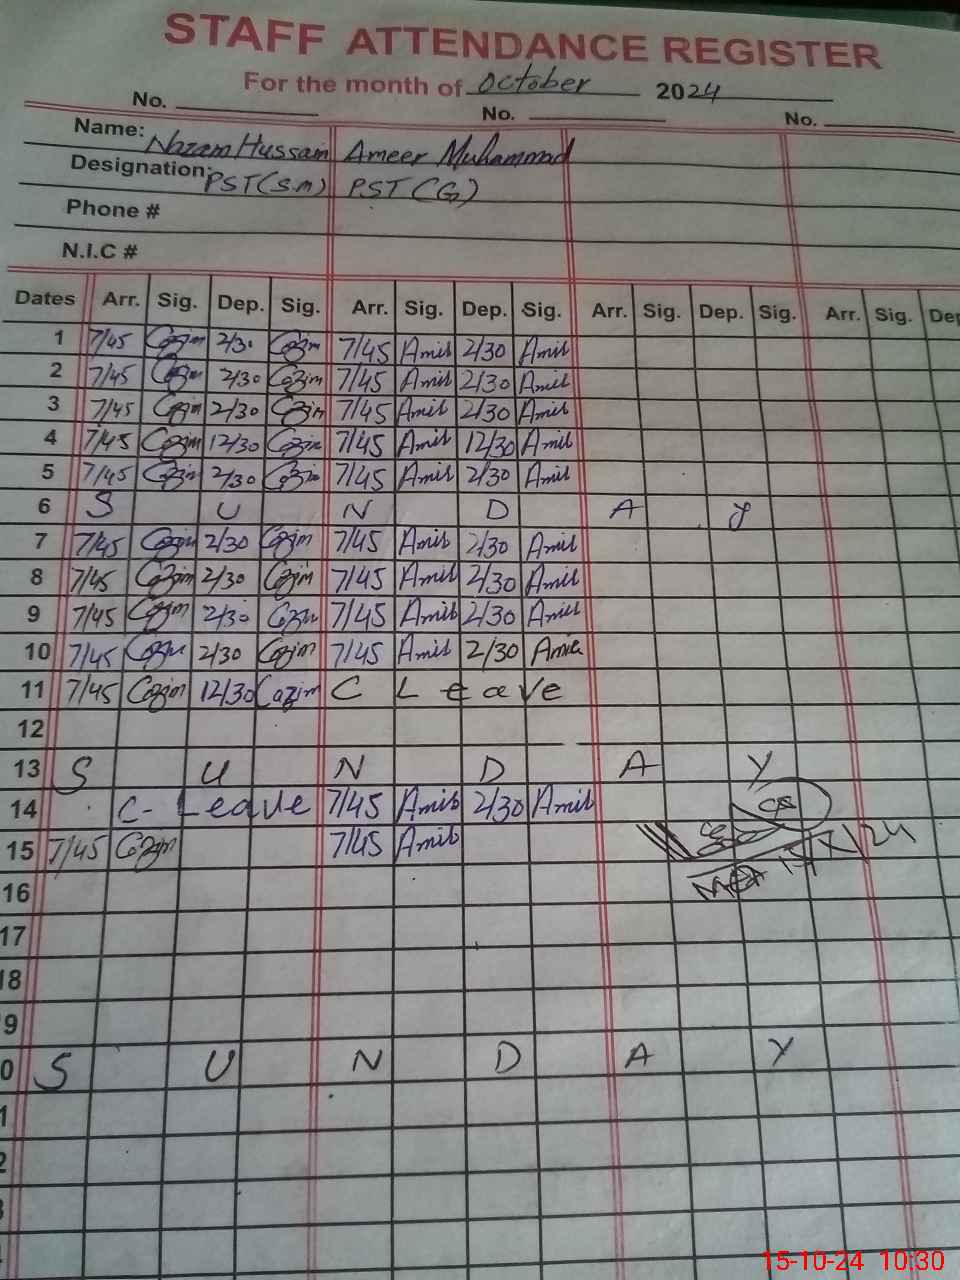 STAFF ATTENDANCE REGISTER
For the month of October 2024
No. No. No.
Name: Nazam Hussam Ameer Muhammad
Designation: PST(S.m) PST(G)
Phone #
N.I.C #
Dates Arr. Sig. Dep. Sig. Arr. Sig. Dep. Sig. Arr. Sig. Dep. Sig. Arr. Sig. Dep
1 7/45 Cazim 2/30 Cazim 7/45 Amib 2/30 Amib
2 7/45 Cazim 2/30 Cazim 7/45 Amib 2/30 Amib
3 7/45 Cazim 2/30 Cazim 7/45 Amib 2/30 Amib
4 7/45 Cazim 12/30 Cazim 7/45 Amib 12/30 Amib
5 7/45 Cazim 2/30 Cazim 7/45 Amib 2/30 Amib
6 S U N D A Y
7 7/45 Cazim 2/30 Cazim 7/45 Amib 2/30 Amib
8 7/45 Cazim 2/30 Cazim 7/45 Amib 2/30 Amib
9 7/45 Cazim 2/30 Cazim 7/45 Amib 2/30 Amib
10 7/45 Cazim 2/30 Cazim 7/45 Amib 2/30 Amib
11 7/45 Cazim 12/30 Cazim C Leave
12
13 S U N D A Y
14 C- Leave 7/45 Amib 2/30 Amib
15 7/45 Cazim 7/45 Amib
16
17
18
9
0 S U N D A Y
1
2
15-10-24 10:30